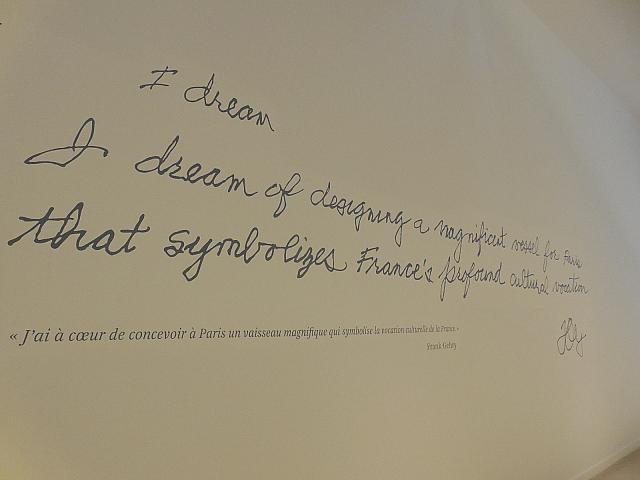 I dream
I dream of designing a magnificent vessel for Paris
that symbolizes France's profound cultural vocation
« J'ai à cœur de concevoir à Paris un vaisseau magnifique qui symbolise la vocation culturelle de la France. »
Frank Gehry